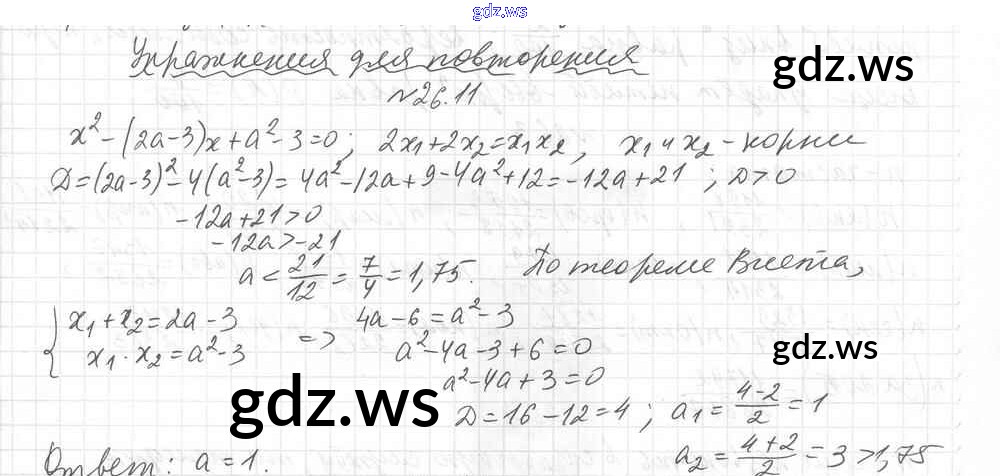 gdz.ws
Упражнения для повторения
gdz.ws
№26.11
x² - (2a-3)x + a² - 3 = 0; 2x₁ + 2x₂ = x₁x₂; x₁ и x₂ - корни
D = (2a-3)² - 4(a²-3) = 4a² - 12a + 9 - 4a² + 12 = -12a + 21; D > 0
-12a + 21 > 0
-12a > -21
a < 21/12 = 7/4 = 1,75. По теореме Виета,
{ x₁ + x₂ = 2a - 3
x₁ · x₂ = a² - 3
=> 4a - 6 = a² - 3
a² - 4a - 3 + 6 = 0
gdz.ws
a² - 4a + 3 = 0
gdz.ws
D = 16 - 12 = 4; a₁ = (4-2)/2 = 1
a₂ = (4+2)/2 = 3 > 1,75
Ответ: a = 1.